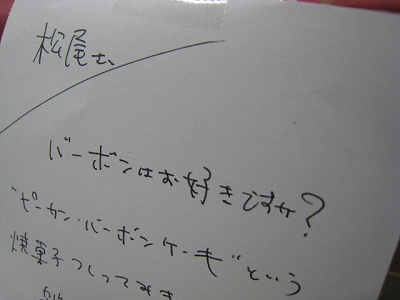 松尾さん
バーボンはお好きですか?
"ピーカン・バーボンケーキ"という
焼菓子つくってみま